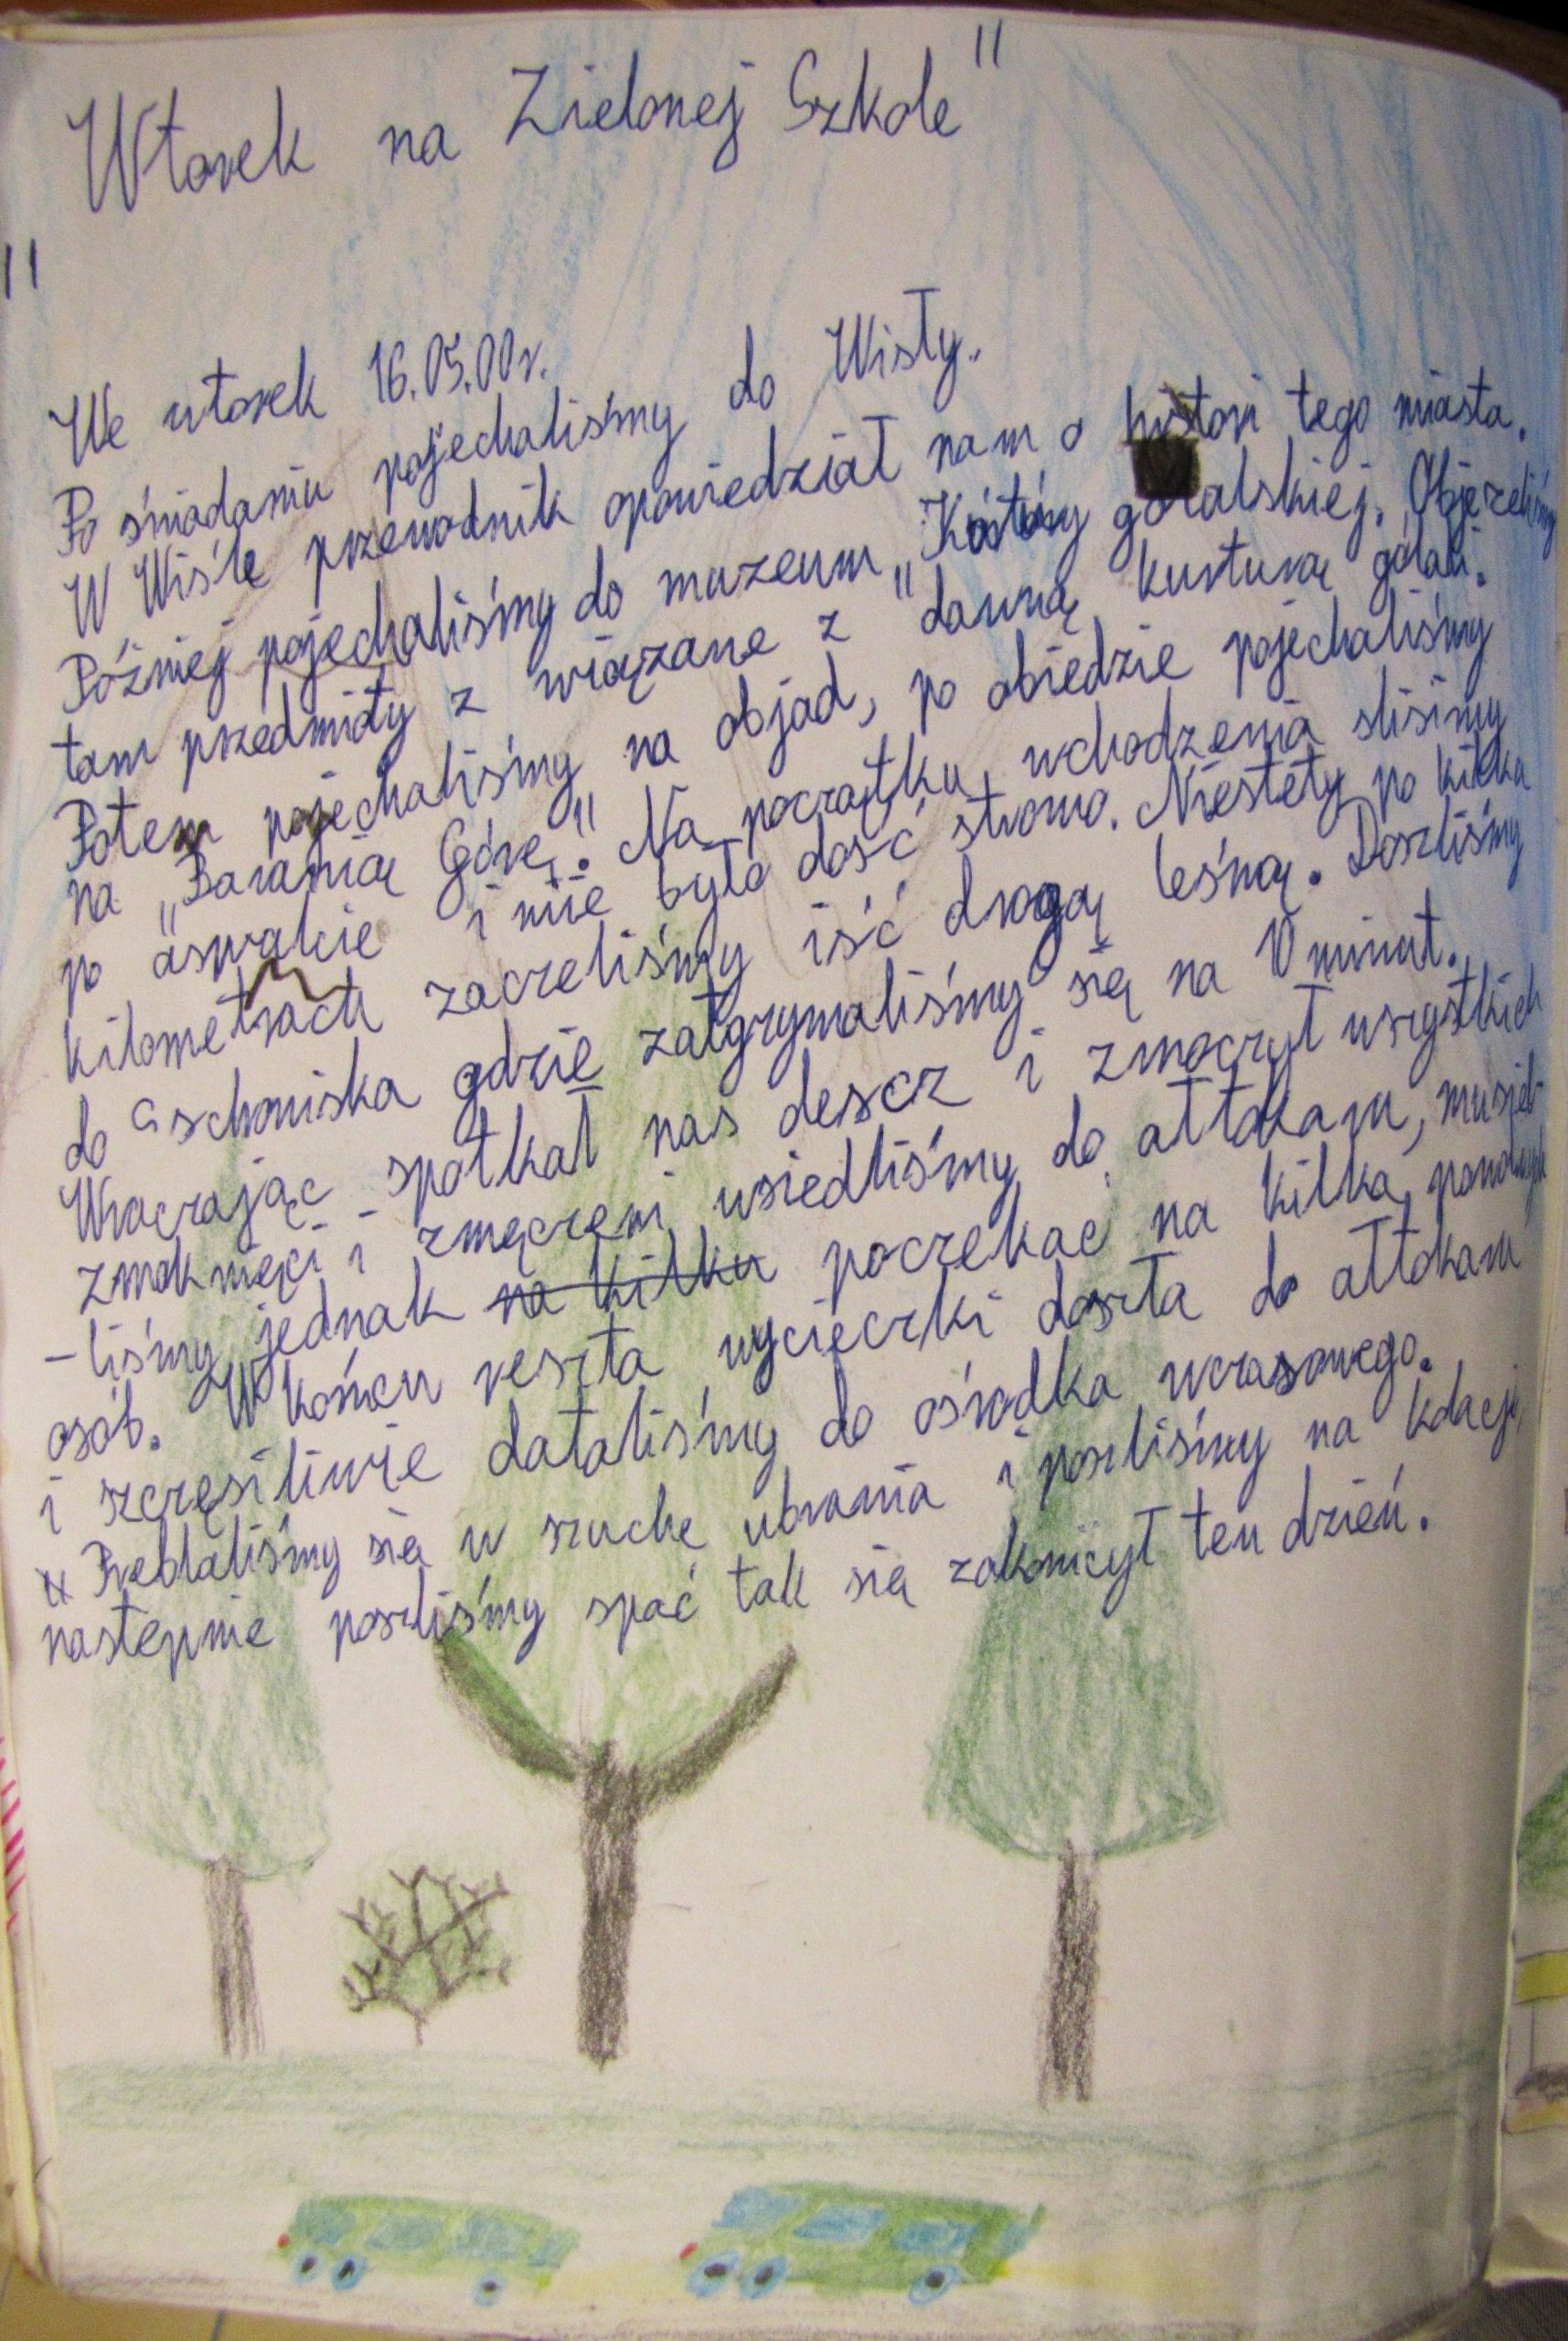 "Wtorek na Zielonej Szkole"
We wtorek 16.05.00r.
Po śniadaniu pojechaliśmy do Wisły.
W Wiśle przewodnik opowiedział nam o histori tego miasta.
Później pojechaliśmy do muzeum „ góralskiej. Objerzeliśmy
tam przedmioty z wiązane z "dawną kurturą górali.
Potem pojechaliśmy na objad, po obiedzie pojechaliśmy
na „Baranią Górę." Na początku wchodzenia sliśimy
po aswalcie i nie było dość stromo. Niestety po kilku
kilometrach zaczeliśmy iść drogą leśną. Doszliśmy
do schoniska gdzie zatgrzymaliśmy się na 10 minut.
Wracając spotkał nas descz i zmoczył wszystkich
zmoknięci i zmęczeni wsiedliśmy do ałtokaru, musie-
-liśmy jednak na kilku poczekać na kilka powolnych
osób. W końcu reszta wycieczki doszła do ałtokaru
i szczęsiliwie dotaliśmy do ośrodka wczasowego.
Preblaliśmy się w szuche ubrania i poszliśmy na kolacje
nastempnie poszliśmy spać tak się zakonicył ten dzień.